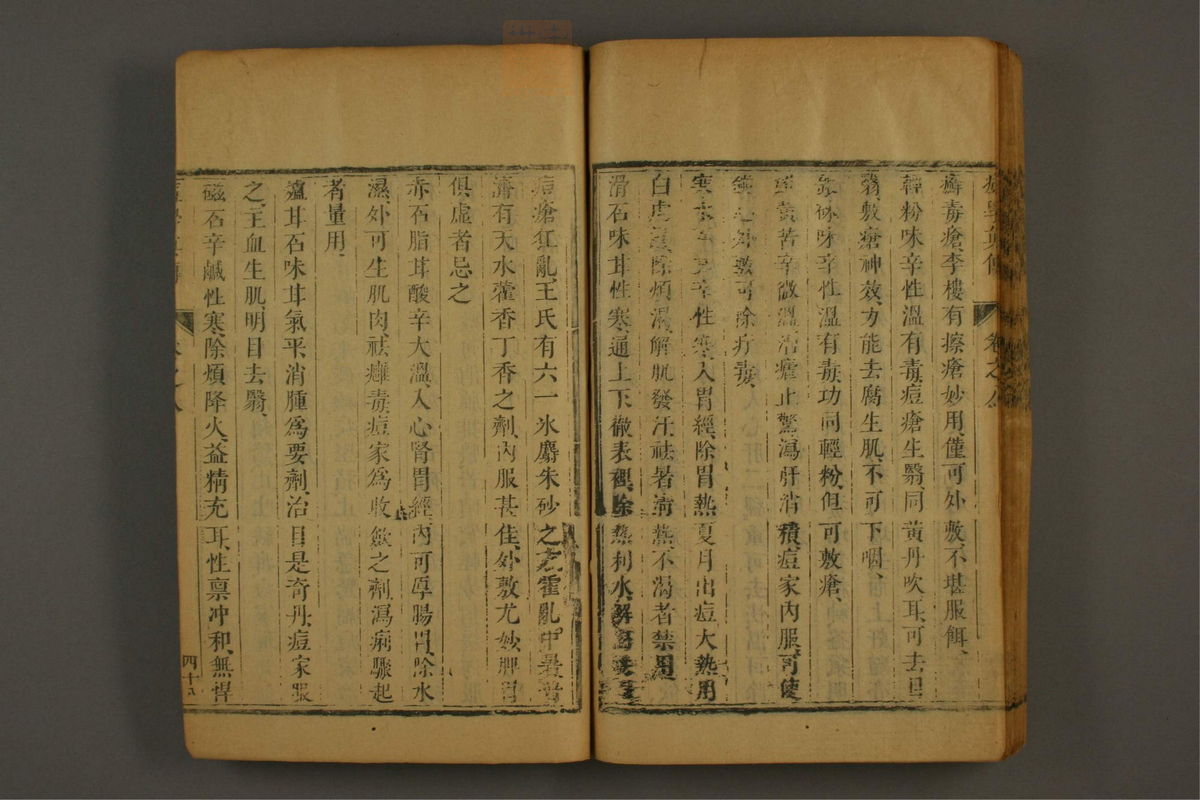 卷之
癬毒瘡、李樓有擦瘡妙用、僅可外敷、不堪服餌、
輕粉味辛性溫有毒、痘瘡生翳、同黃丹吹耳、可去、但
敷瘡神效、方能去腐生肌、不可下咽、
味辛性溫有毒、功同輕粉、但可敷瘡、
黃苦辛微溫、治瘧止驚、瀉肝消積、痘家內服、可使
外敷可除疔毒、
寒水石 辛性寒、入胃經、除胃熱、夏月出痘大熱用
白虎 除煩渴、解肌發汗、祛暑淸熱、不渴者禁用
滑石味甘性寒、通上下、徹表裡、除熱利水、解
痘瘡狂亂、王氏有六一氷麝朱砂之 霍亂中暑
濟有天水藿香丁香之劑、內服甚佳、外敷尤妙、脾胃
俱虛者忌之
赤石脂甘酸辛大溫、入心腎胃經、內可厚腸胃、除水
濕、外可生肌肉、祛癰毒、痘家爲收斂之劑、瀉痢驟起
者量用、
爐甘石味甘氣平、消腫爲要劑、治目是奇丹、痘家服
之、主血生肌、明目去翳、
磁石辛鹹性寒、除煩降火、益精充耳、性稟冲和、無悍
四十八